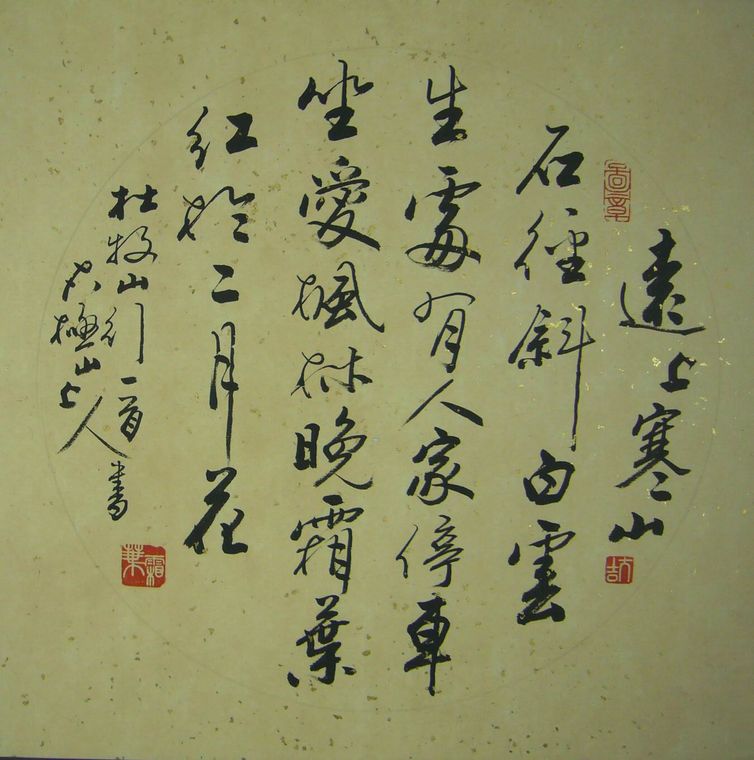 遠上寒山
石徑斜白雲
生處有人家停車
坐愛楓林晚霜葉
紅於二月花
杜牧山行一首書
極山上人
霜葉